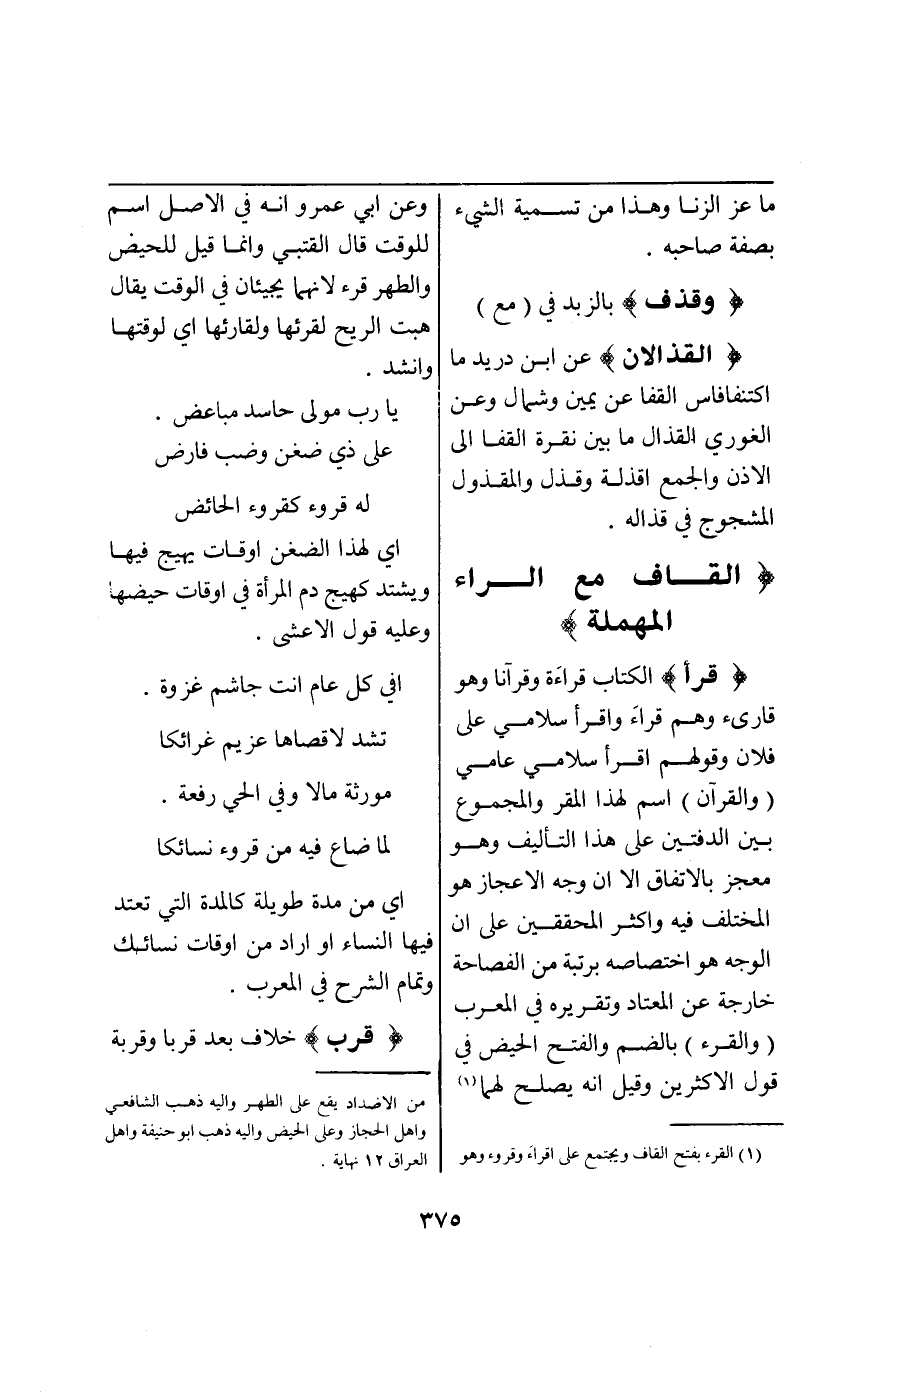 ما عز الزنا وهذا من تسمية الشيء
بصفة صاحبه .
﴿ وقذف ﴾ بالزبد في ( مع )
﴿ القذالان ﴾ عن ابن دريد ما
اكتنفافاس القفا عن يمين وشمال وعن
الغوري القذال ما بين نقرة القفا الى
الاذن والجمع اقذلة وقذل والمقذول
المشجوج في قذاله .
﴿ القاف مع الراء
المهملة ﴾
﴿ قرأ ﴾ الكتاب قراءة وقرآنا وهو
قارىء وهم قراء واقرأ سلامي على
فلان وقولهم اقرأ سلامي عامي
( والقرآن ) اسم لهذا المقر والمجموع
بين الدفتين على هذا التأليف وهو
معجز بالاتفاق الا ان وجه الاعجاز هو
المختلف فيه واكثر المحققين على ان
الوجه هو اختصاصه برتبة من الفصاحة
خارجة عن المعتاد وتقريره في المعرب
( والقرء ) بالضم والفتح الحيض في
قول الاكثرين وقيل انه يصلح لهما (١)
(١) القرء بفتح القاف ويجتمع على اقراء وقروء وهو
وعن ابي عمرو انه في الاصل اسم
للوقت قال القتبي وانما قيل للحيض
والطهر قرء لانهما يجيئان في الوقت يقال
هبت الريح لقرئها ولقارئها اي لوقتها
وانشد .
يا رب مولى حاسد مباعض .
على ذي ضغن وضب فارض
له قروء كقروء الحائض
اي لهذا الضغن اوقات يهيج فيها
ويشتد كهيج دم المرأة في اوقات حيضها
وعليه قول الاعشى .
افي كل عام انت جاشم غزوة .
تشد لاقصاها عزيم غرائكا
مورثة مالا وفي الحي رفعة .
لما ضاع فيه من قروء نسائكا
اي من مدة طويلة كالمدة التي تعتد
فيها النساء او اراد من اوقات نسائك
وتمام الشرح في المعرب .
﴿ قرب ﴾ خلاف بعد قربا وقربة
من الاضداد يقع على الطهر واليه ذهب الشافعي
واهل الحجاز وعلى الحيض واليه ذهب ابو حنيفة واهل
العراق ١٢ نهاية .
٣٧٥